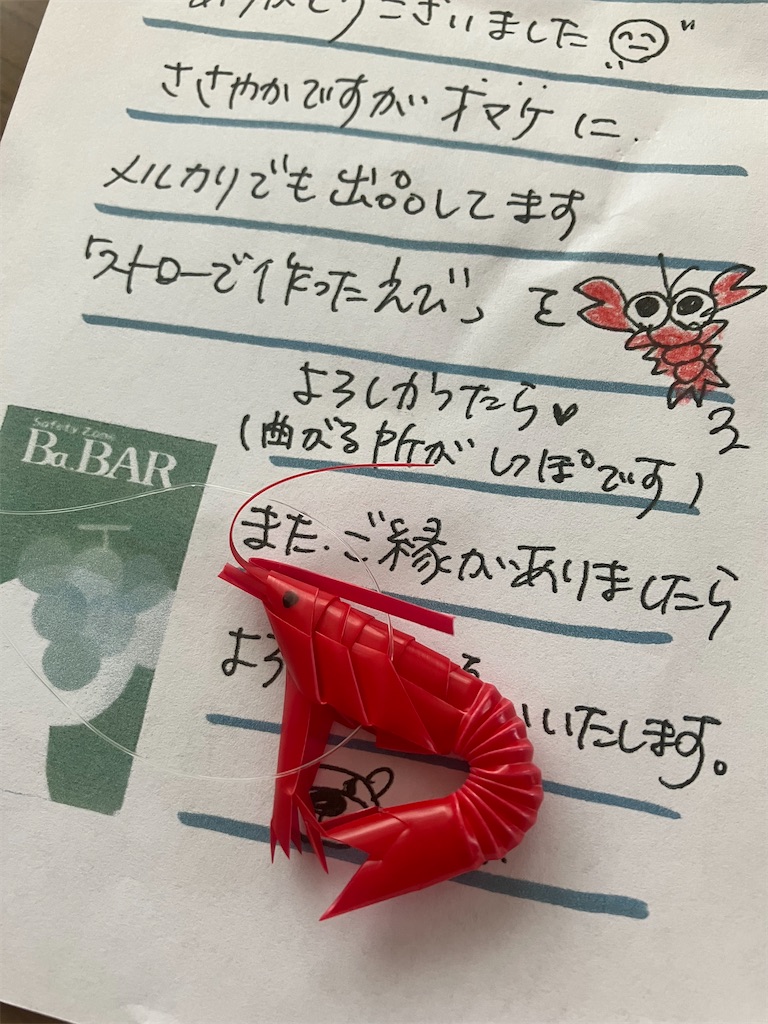 ありがとうございました
ささやかですがオマケに、
メルカリでも出品してます
「ストローで作ったえび」を
よろしかったら♥
(曲がる所がしっぽです)
また、ご縁がありましたら
よろ
いいたします。
Safety Zone
Ba.BAR